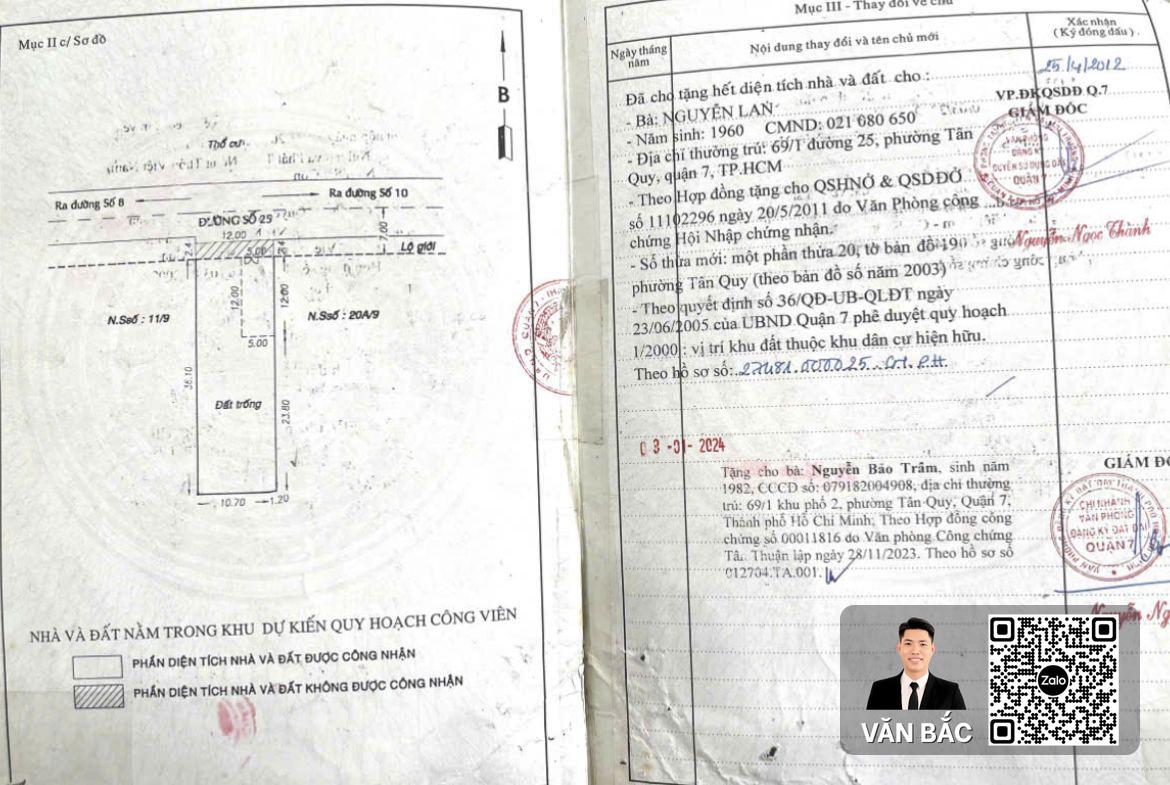 Mục II c/ Sơ đồ
B
Thổ cư
Ra đường Số 8
Ra đường Số 10
ĐƯỜNG SỐ 25
12.00
7.00
2.4
5.00
2.4
Lộ giới
N.Ssố : 11/9
12.00
12.00
N.Ssố : 20A/9
5.00
36.10
Đất trống
23.80
10.70
1.20
NHÀ VÀ ĐẤT NẰM TRONG KHU DỰ KIẾN QUY HOẠCH CÔNG VIÊN
PHẦN DIỆN TÍCH NHÀ VÀ ĐẤT ĐƯỢC CÔNG NHẬN
PHẦN DIỆN TÍCH NHÀ VÀ ĐẤT KHÔNG ĐƯỢC CÔNG NHẬN
Mục III - Thay đổi về chủ
Ngày tháng năm
Nội dung thay đổi và tên chủ mới
Xác nhận
( Ký đóng dấu )
25/4/2012
VP.ĐKQSDĐ Q.7
GIÁM ĐỐC
QUẬN 7
Nguyễn Ngọc Thành
Đã cho tặng hết diện tích nhà và đất cho :
- Bà: NGUYỄN LAN
- Năm sinh: 1960 CMND: 021 080 650
- Địa chỉ thường trú: 69/1 đường 25, phường Tân
Quy, quận 7, TP.HCM
- Theo Hợp đồng tặng cho QSHNỞ & QSDĐỞ
số 11102296 ngày 20/5/2011 do Văn Phòng công
chứng Hội Nhập chứng nhận.
- Số thửa mới: một phần thửa 20; tờ bản đồ 190
phường Tân Quy (theo bản đồ số năm 2003)
- Theo quyết định số 36/QĐ-UB-QLĐT ngày
23/06/2005 của UBND Quận 7 phê duyệt quy hoạch
1/2000 : vị trí khu đất thuộc khu dân cư hiện hữu.
Theo hồ sơ số:
03-01-2024
Tặng cho bà: Nguyễn Bảo Trâm, sinh năm
1982, CCCD số: 079182004908, địa chỉ thường
trú: 69/1 khu phố 2, phường Tân Quy, Quận 7,
Thành phố Hồ Chí Minh; Theo Hợp đồng công
chứng số 00011816 do Văn phòng Công chứng
Tâ. Thuận lập ngày 28/11/2023. Theo hồ sơ số
012704.TA.001.
GIÁM ĐỐ
CHI NHÁNH
VĂN PHÒNG
ĐĂNG KÝ ĐẤT ĐAI
QUẬN 7
Nguyễn Ng
VĂN BẮC
Zalo